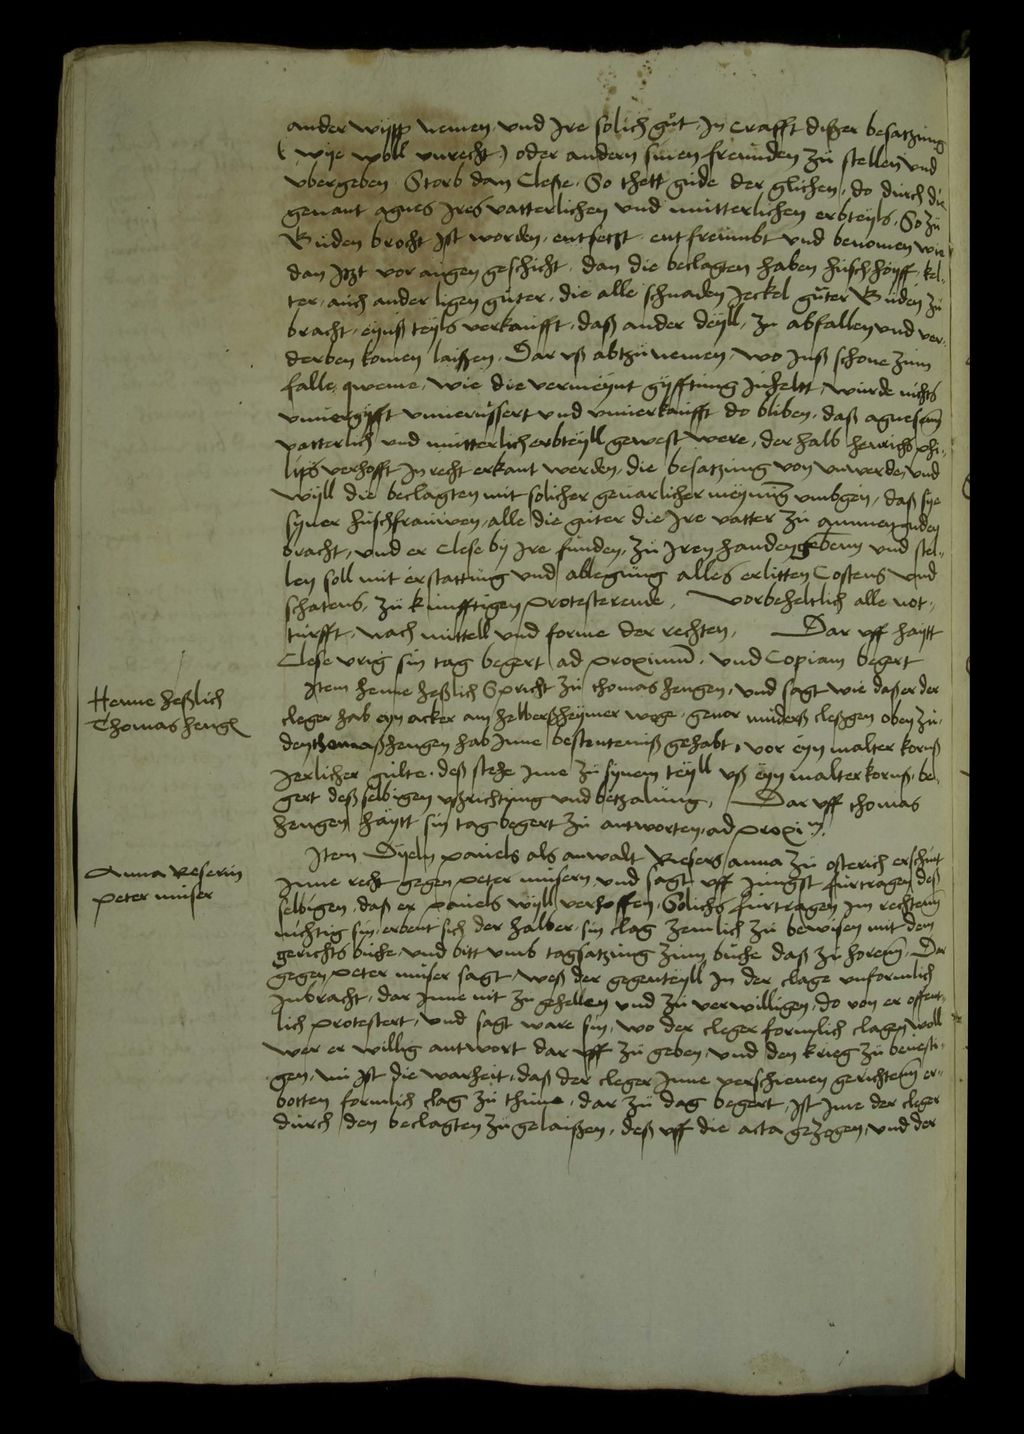 ander wyßß nemen, und Ire solich gůt, In crafft dißer besatzung
( wye woll unrecht ) oder andern sinen freunden zu stellen und
ubergeben Storb dan Cleße, So thett gude der glichen, do durch die
genant agnes Ires vatterlichen und mutterlichen erbteyls, So zu
Buden brocht Ist worden, entsetzt entfreümbt und benomen wie
dan Itzt vor augen geschicht, dan die beclagten haben husch hoyff, kel-
ter, auch ander ligen guter, die alle schnaden Jeckel gůter Buden zu
bracht, eynß teyls verkaufft, daß ander deyll, zu abfallen und ver-
derben komen laißen, Dar uß abtzunemen, wo Inß schone zum
falle qweme, wie die vermeynt gyfftung Inheltt, wurde nichts
unvergifft unverußert und unverkaufft do bliben, daß agneßen
vatterlich und mutterlich erbteyll gewest were, der halb henrichs phi-
lips verhofft In recht erkant werden, die besatzung von unwerde, und
wyll die beclagten mit solicher gevarlicher meynung umbgen, daß sye
syner huschfrauwen, alle die guter die Ire vatter zu
bracht, und er Clese by Ire funden, zu Iren handen geben und stel-
len soll mit erstattung und ablegung alles erlitten Costens und
schatens, zu kunfftigen protesterende, Vorbeheltlich alle not-
turfft, nach mittell und forme der rechten, Dar uff haytt
Clese urig sin tag begert ad proximum, und Copiam begert
Henne heßlich
Thomas hengen
Item henne heßlich Spricht zu thomas hengen, und sagt wie daß er der
cleger hab eyn acker am helberßheymer wege, genor cleßgen oben zu,
den thomaß hengen hab Inne bestenteniß gehabt, vor eyn malter korns
Jerlicher gulte, deß stehe Ime zu synem teyll uß eyn malter korns, be-
gert deß selbigen ußrichtung und betzalung, Dar uff thomas
hengen haytt sin tag begert zu antworten, ad proximum
Anna Reserin
Peter muser
Item Dyeln pauels als anwalt Resers anna zu osterich erschint
Inne recht gegen peter musern, und sagt uff Jungst furtragen deß
selbigen, daß er pauels wyll verhoffen, Solichs furtragen Im rechten
nichtig sin, erbeut sich der halber, sin clag zemlich zu bewisen mit dem
gerichts buche, und bitt umb tagsatzung zum buche daß zu horen, Dar
gegen peter muser sagt, weß der gegenteyll In der clage unformlich
Inbracht, dar Inne nit zu gehellen und zu verwilligen, do von er offent-
lich protestert, und sagt ware sin, wo der cleger formlich clagen woll
wer er willig antwort dar uff zu geben, und den krieg zu bevesti-
gen, nu Ist die warheit, daß der cleger Inne verschienen gerichten er-
botten formlich clag zu thune, dar zu dag begert, Ist Ime der cleger
durch den beclagten zugelaißen, deß uff die acta gezogen, und der